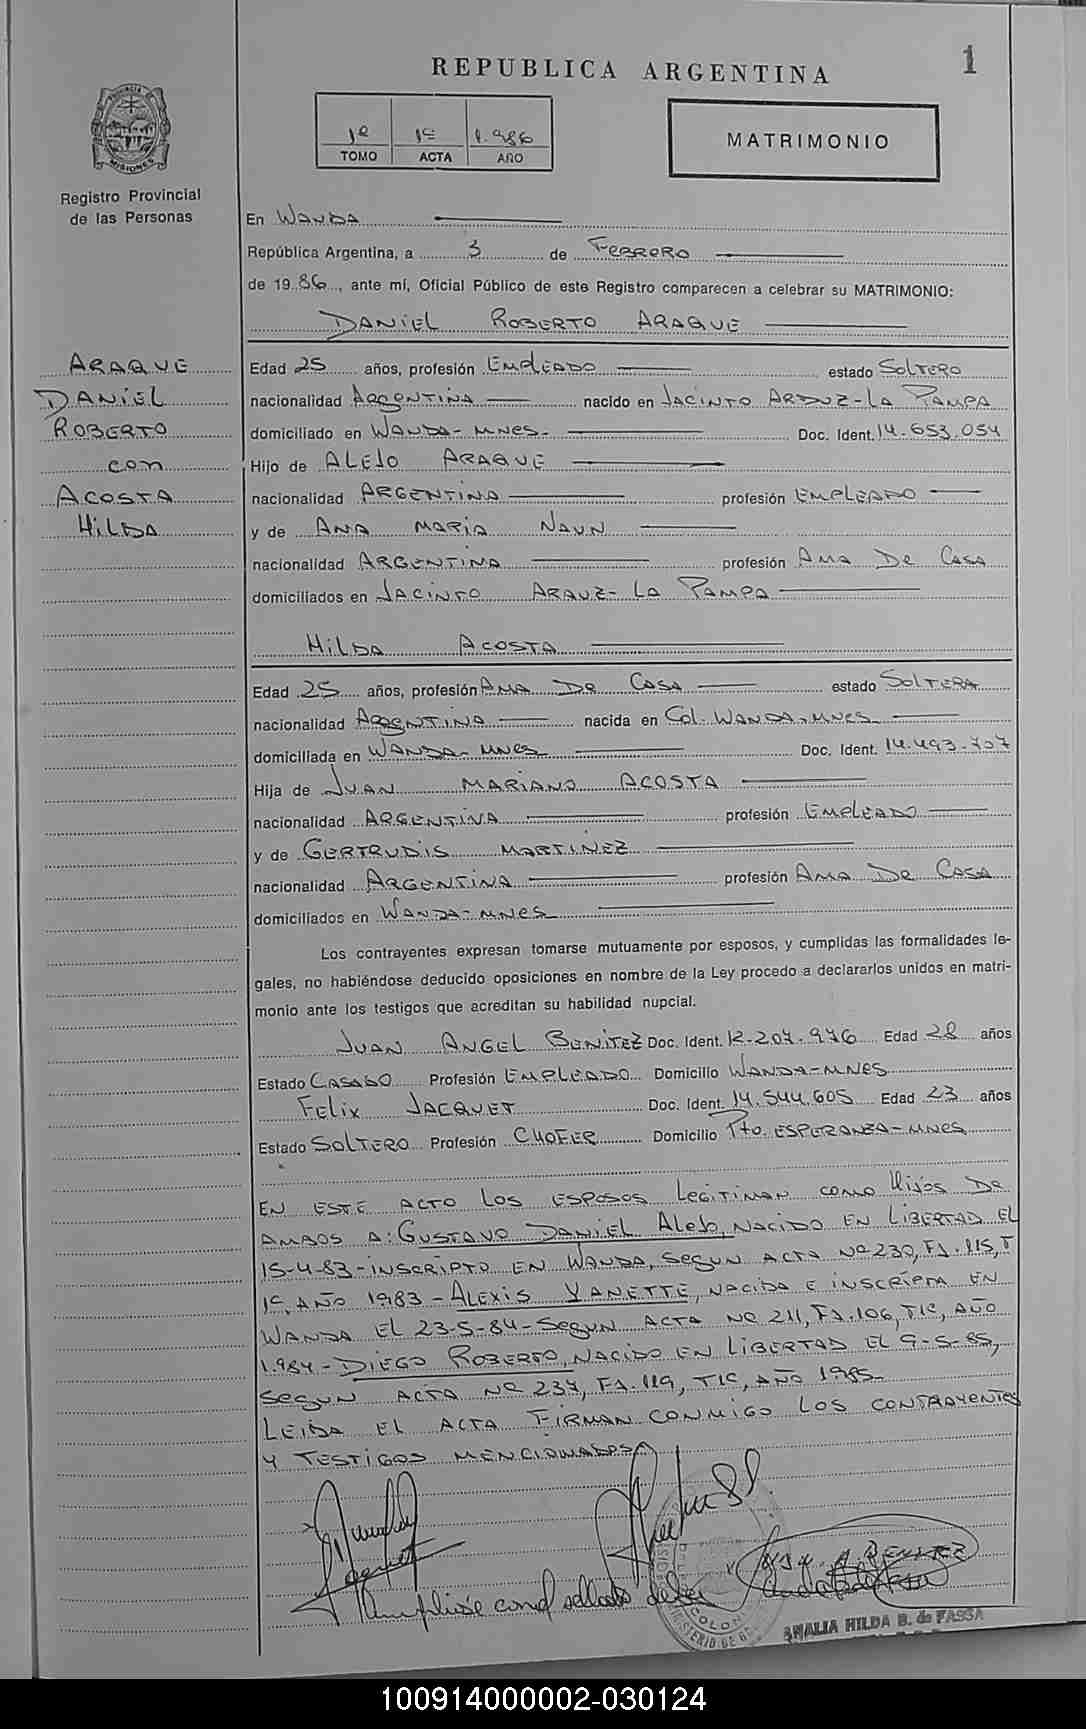 REPUBLICA ARGENTINA
1
1º 1º 1.986
TOMO ACTA AÑO
MATRIMONIO
PROVINCIA DE MISIONES
Registro Provincial
de las Personas
En WANDA
República Argentina, a 3 de FEBRERO
de 19 86, ante mí, Oficial Público de este Registro comparecen a celebrar su MATRIMONIO:
DANIEL ROBERTO ARAQUE
ARAQUE
DANIEL
ROBERTO
con
ACOSTA
HILDA
Edad 25 años, profesión EMPLEADO estado SOLTERO
nacionalidad ARGENTINA nacido en JACINTO ARAUZ-LA PAMPA
domiciliado en WANDA-MNES- Doc. Ident. 14.653.054
Hijo de ALEJO ARAQUE
nacionalidad ARGENTINA profesión EMPLEADO
y de ANA MARIA NAUN
nacionalidad ARGENTINA profesión AMA DE CASA
domiciliados en JACINTO ARAUZ-LA PAMPA
HILDA ACOSTA
Edad 25 años, profesión AMA DE CASA estado SOLTERA
nacionalidad ARGENTINA nacida en Col. WANDA-MNES
domiciliada en WANDA-MNES Doc. Ident. 14.493.707
Hija de JUAN MARIANO ACOSTA
nacionalidad ARGENTINA profesión EMPLEADO
y de GERTRUDIS MARTINEZ
nacionalidad ARGENTINA profesión AMA DE CASA
domiciliados en WANDA-MNES
Los contrayentes expresan tomarse mutuamente por esposos, y cumplidas las formalidades le-
gales, no habiéndose deducido oposiciones en nombre de la Ley procedo a declararlos unidos en matri-
monio ante los testigos que acreditan su habilidad nupcial.
JUAN ANGEL BENITEZ Doc. Ident. 12.207.976 Edad 28 años
Estado CASADO Profesión EMPLEADO Domicilio WANDA-MNES
FELIX JACQUET Doc. Ident. 14.544.605 Edad 23 años
Estado SOLTERO Profesión CHOFER Domicilio Pto. ESPERANZA-MNES
EN ESTE ACTO LOS ESPOSOS LEGITIMAN COMO HIJOS DE
AMBOS A: GUSTAVO DANIEL ALEJO, NACIDO EN LIBERTAD EL
15-4-83-INSCRIPTO EN WANDA, SEGUN ACTA Nº 230, FJ. 115, T
1º, AÑO 1983-ALEXIS YANETTE, NACIDA E INSCRIPTA EN
WANDA EL 23-5-84-SEGUN ACTA Nº 211, FJ. 106, T1º, AÑO
1.984-DIEGO ROBERTO, NACIDO EN LIBERTAD EL 9-5-85,
SEGUN ACTA Nº 237, FJ. 119, T1º, AÑO 1985-
LEIDA EL ACTA FIRMAN CONMIGO LOS CONTRAYENTES
Y TESTIGOS MENCIONADOS
JUAN A. BENITEZ
con el sellado de ley
ANALIA HILDA B. de FASSA
100914000002-030124